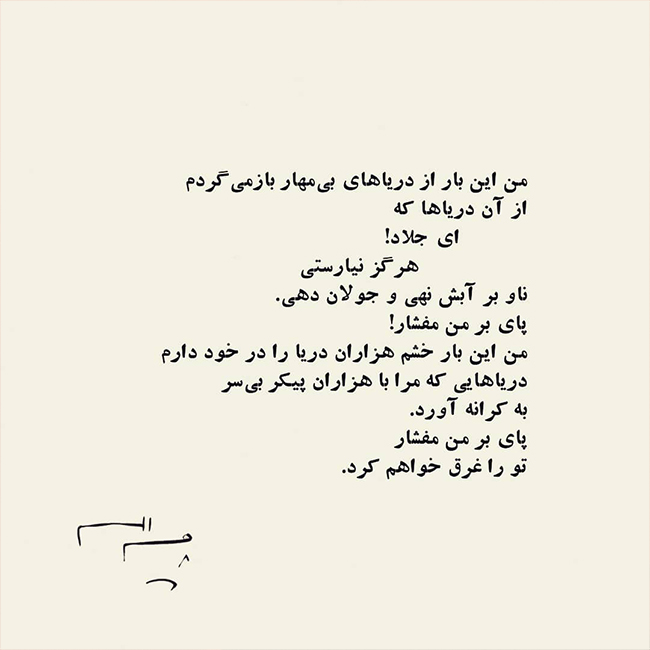 من این بار از دریاهای بی‌مهار بازمی‌گردم
از آن دریاها که
ای جلاد!
هرگز نیارستی
ناو بر آبش نهی و جولان دهی.
پای بر من مفشار!
من این بار خشم هزاران دریا را در خود دارم
دریاهایی که مرا با هزاران پیکر بی‌سر
به کرانه آورد.
پای بر من مفشار
تو را غرق خواهم کرد.